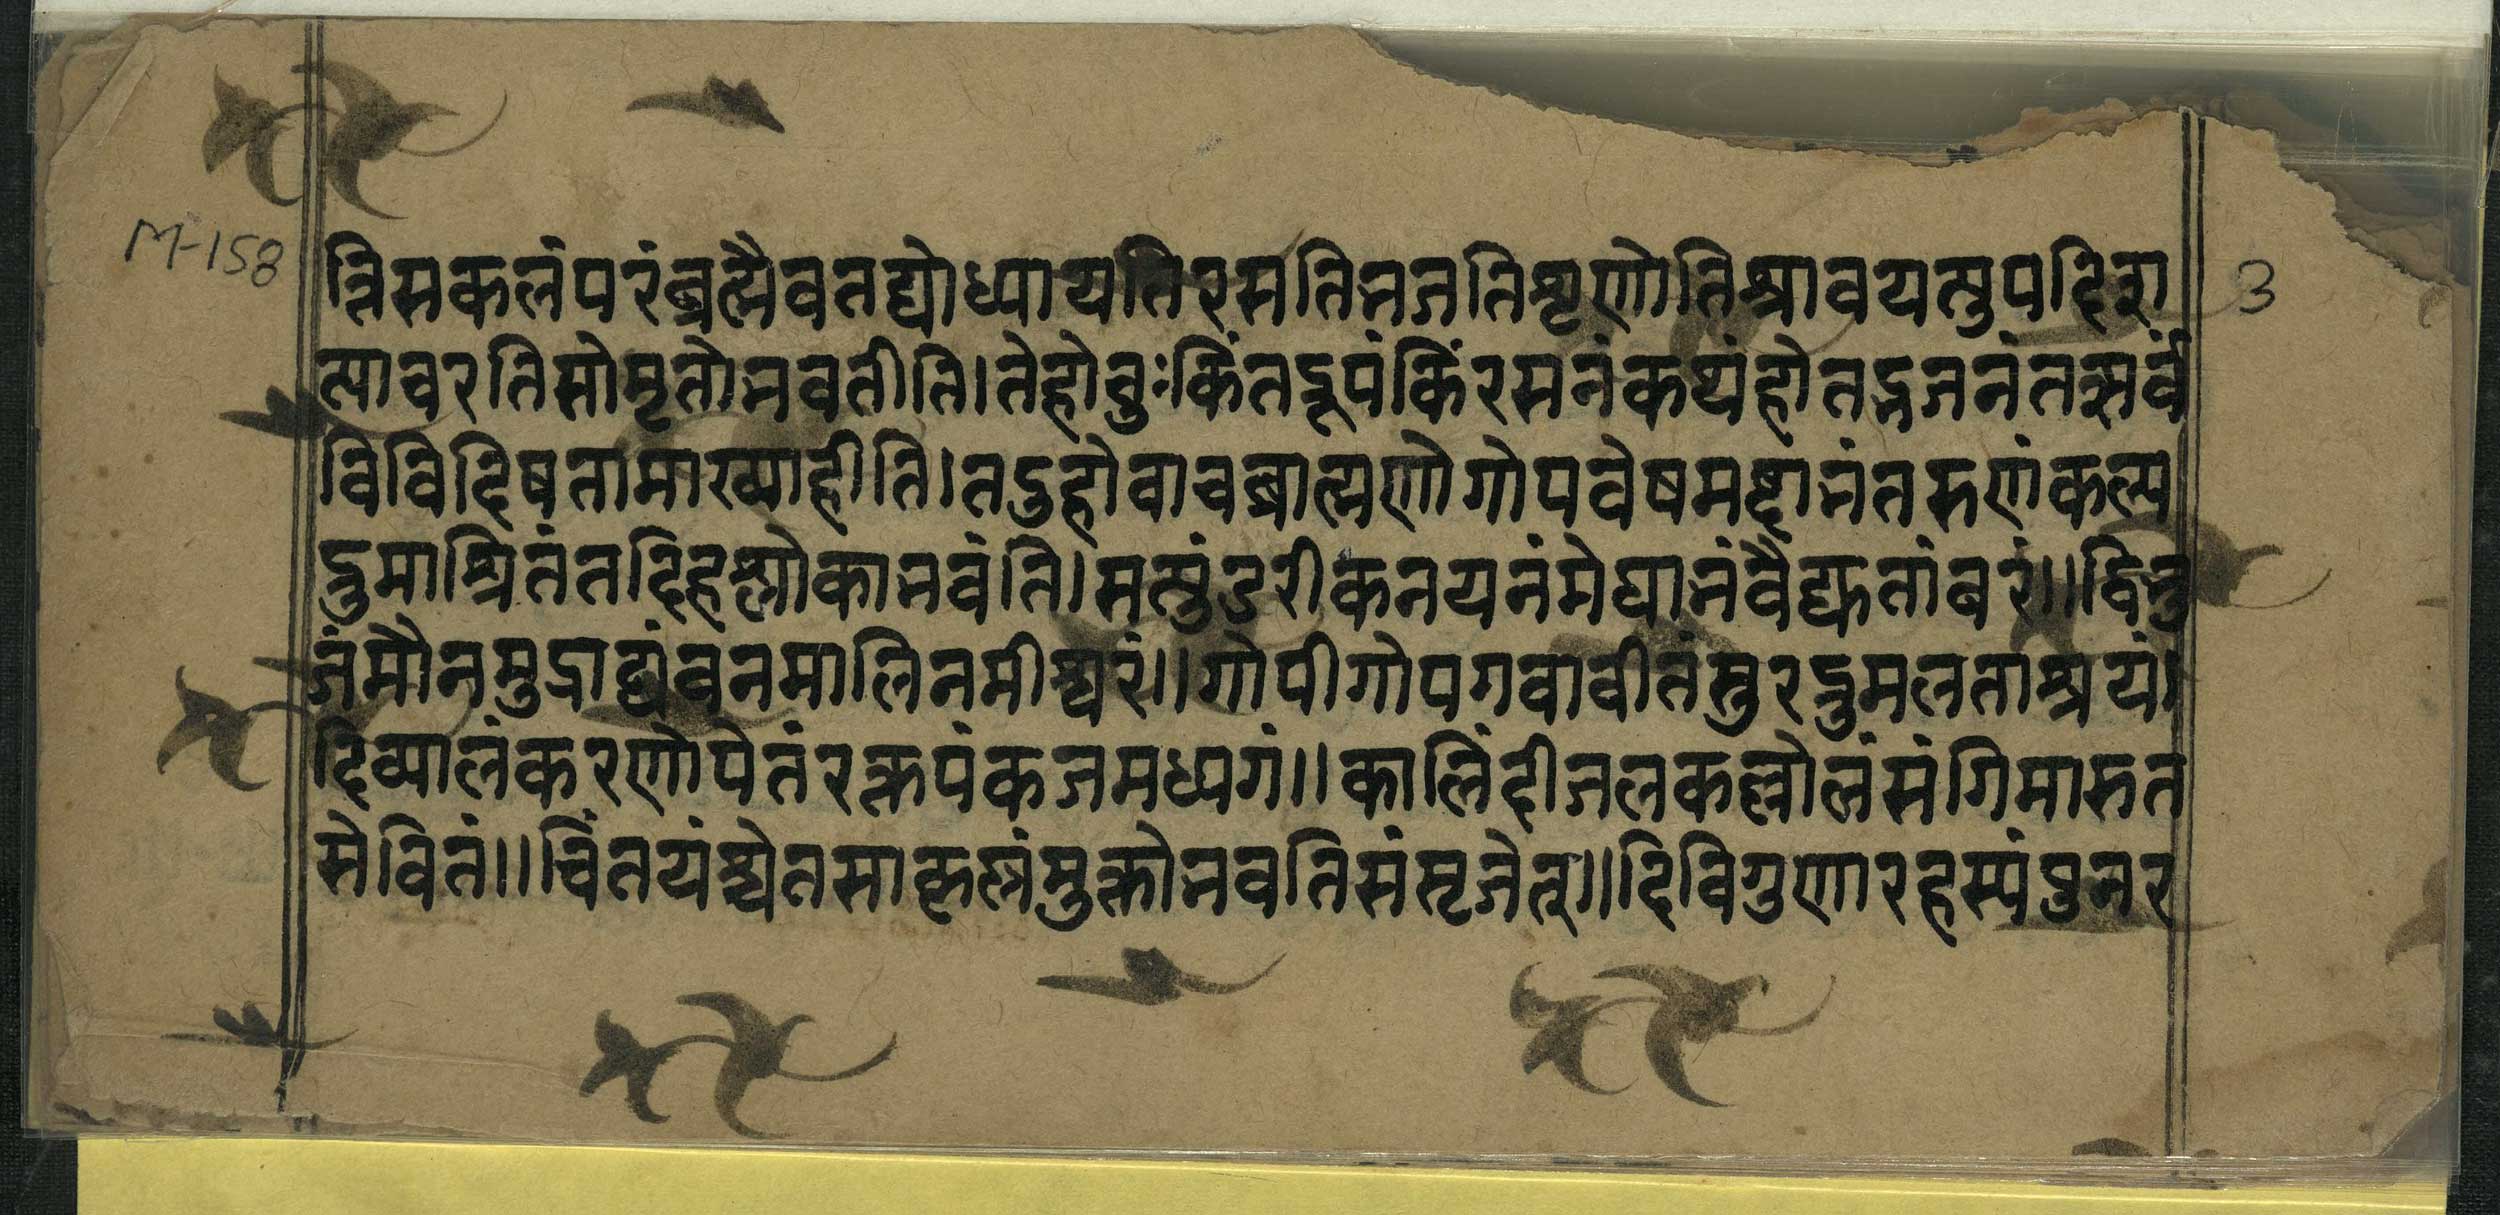 M-158
न्निसकलंपरंब्रह्मैवतद्योध्यायतिरसतिभजतिशृणोतिश्रावयत्युपदिशा
त्याचरतिसोमृतोभवतीति।तेहोचुःकिंतद्रूपंकिंरसनंकथंहोतद्भजनंतत्सर्वं
विविदिषतामाख्याहीति।तदुहोवाचब्राह्मणोगोपवेषमभ्राभंतरुणंकल्प
द्रुमाश्रितंतदिहश्लोकाभवंति।सत्पुंडरीकनयनंमेघाभंवैद्युतांबरं॥द्विभु
जंमौनमुद्राढ्यंवनमालिनमीश्वरं॥गोपीगोपगवावीतंसुरद्रुमलताश्रयं।
दिव्यालंकरणोपेतंरक्तपंकजमध्यगं॥कालिंदीजलकल्लोलंसंगिमारुत
सेवितं॥चिंतयंश्चेतसाकृष्णंमुक्तोभवतिसंसृतेत्॥दिविगुणारहस्यंपुनर
3